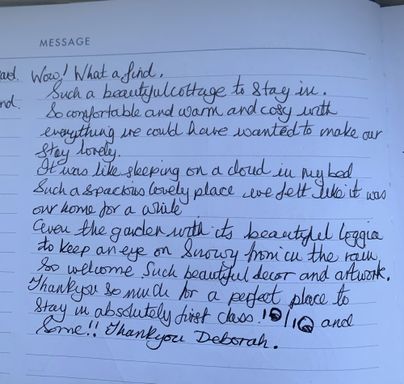 MESSAGE
Wow! What a find.
Such a beautiful cottage to stay in.
So comfortable and warm and cosy with
everything we could have wanted to make our
stay lovely.
It was like sleeping on a cloud in my bed
Such a spacious lovely place we felt like it was
our home for a while
Even the garden with its beautiful loggia
to keep an eye on Snowy from in the rain
So welcome Such beautiful decor and artwork.
Thankyou so much for a perfect place to
Stay in absolutely first class. 10/10 and
Some!! Thankyou Deborah.